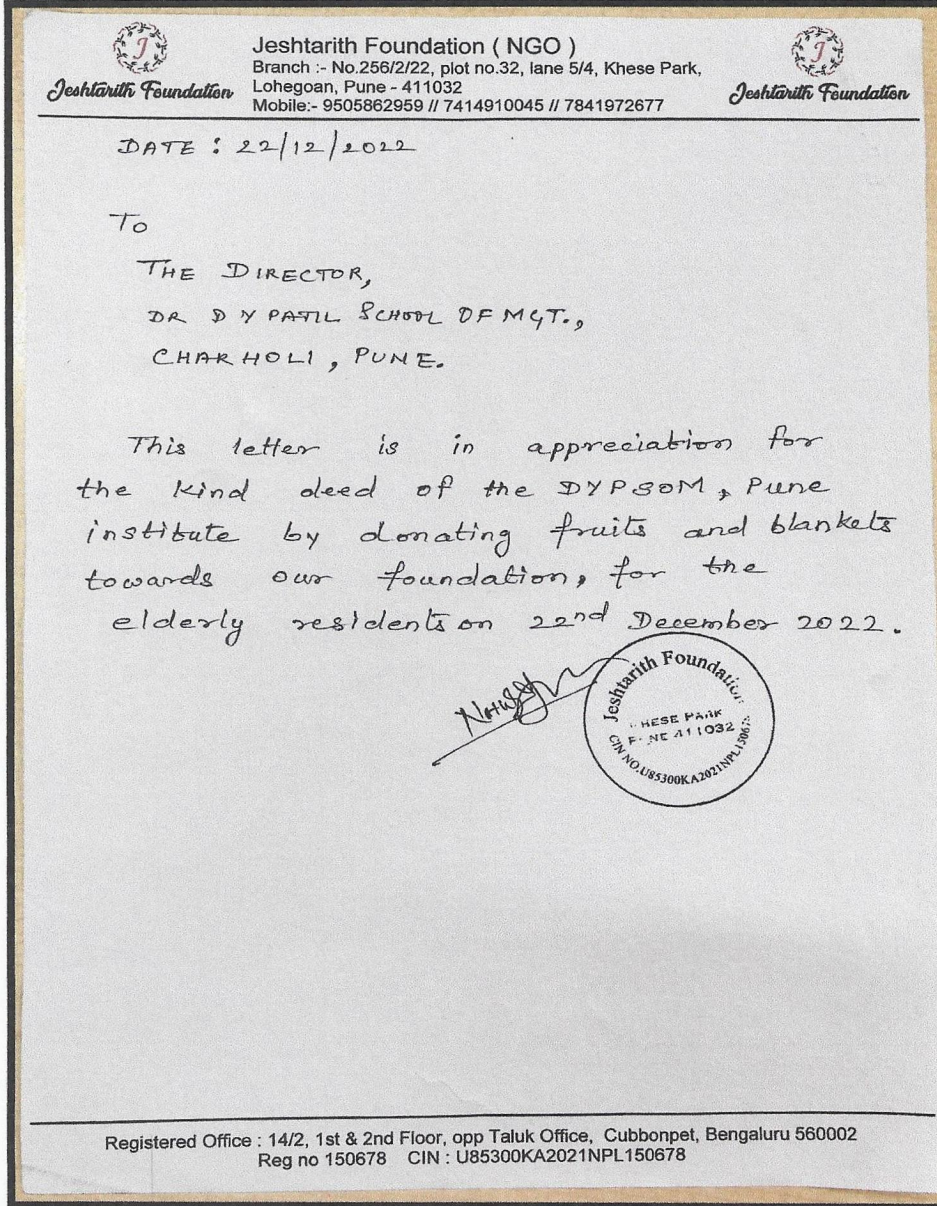 J
Jeshtarith Foundation
Jeshtarith Foundation ( NGO )
Branch :- No.256/2/22, plot no.32, lane 5/4, Khese Park,
Lohegoan, Pune - 411032
Mobile:- 9505862959 // 7414910045 // 7841972677
J
Jeshtarith Foundation
DATE : 22/12/2022
To
THE DIRECTOR,
DR D Y PATIL SCHOOL OF MGT.,
CHARHOLI, PUNE.
This letter is in appreciation for
the kind deed of the DYPSOM, Pune
institute by donating fruits and blankets
towards our foundation, for the
elderly residents on 22nd December 2022.
Jeshtarith Foundation
HESE PARK
NE 411032
CIN NO.U85300KA2021NPL150678
Registered Office : 14/2, 1st & 2nd Floor, opp Taluk Office, Cubbonpet, Bengaluru 560002
Reg no 150678 CIN : U85300KA2021NPL150678